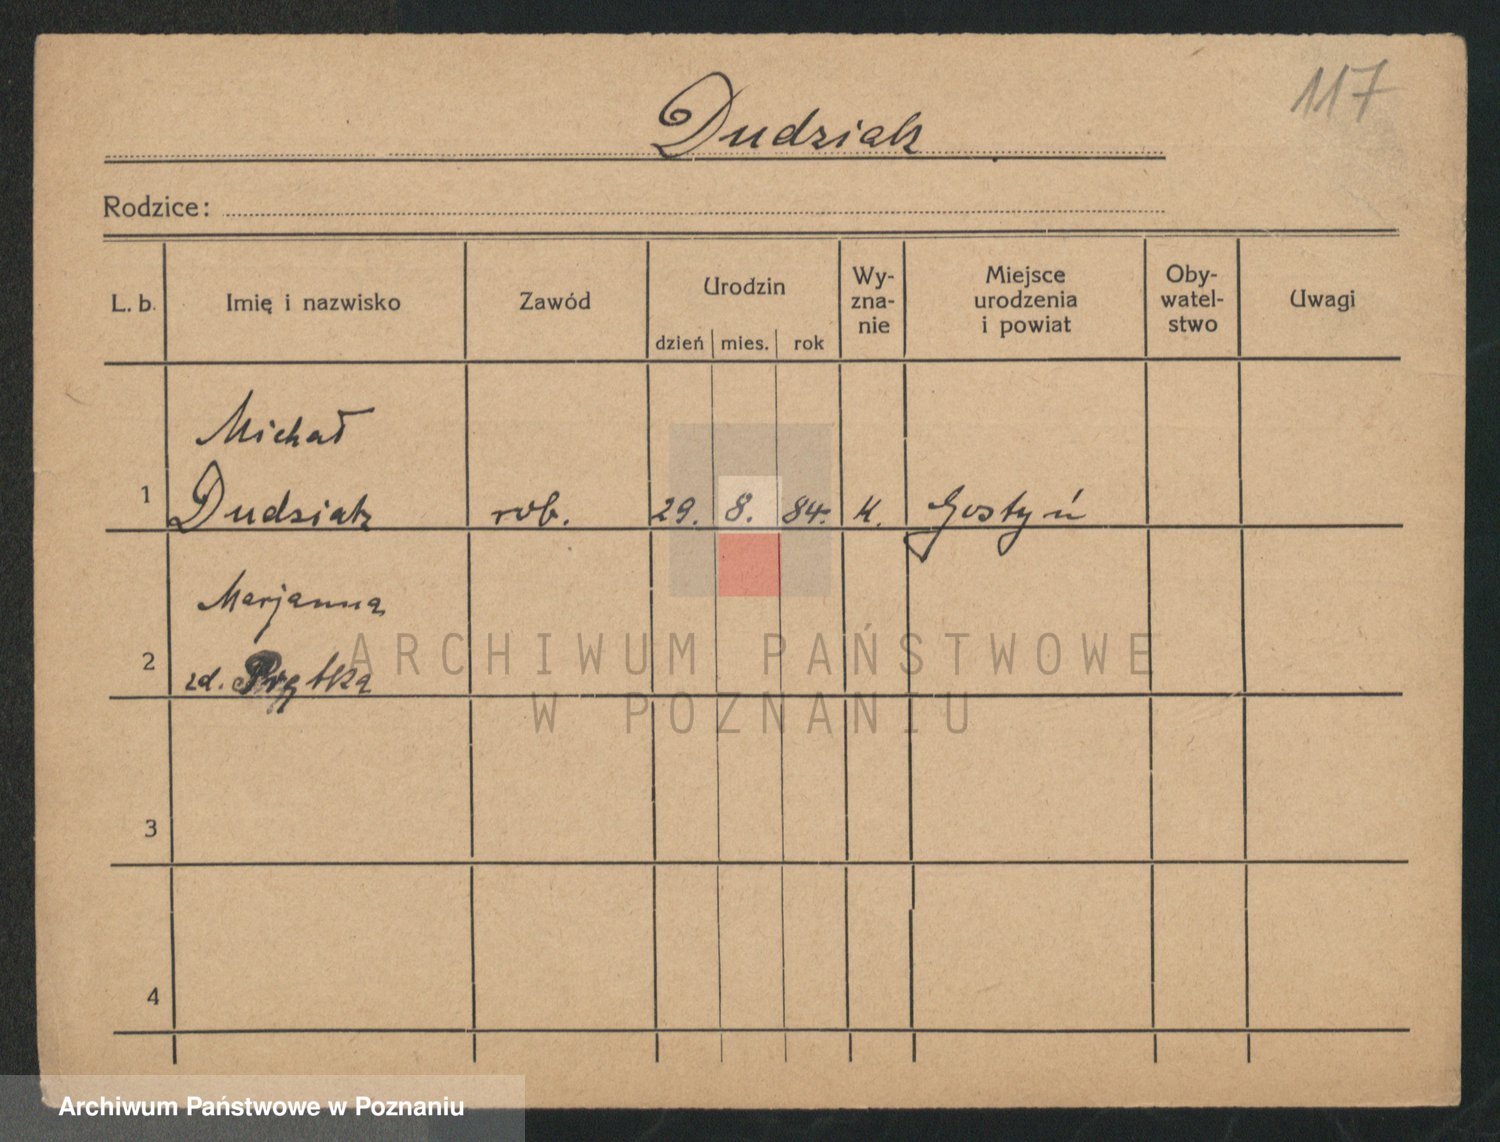 117
Dudziak
Rodzice:
L. b. Imię i nazwisko Zawód Urodzin Wy-zna-nie Miejsce urodzenia i powiat Oby-watel-stwo Uwagi
dzień mies. rok
Michał
1 Dudziak rob. 29. 8. 84. K. Gostyń
Marjanna
2 zd. Prętka
3
4
ARCHIWUM PAŃSTWOWE
W POZNANIU
Archiwum Państwowe w Poznaniu